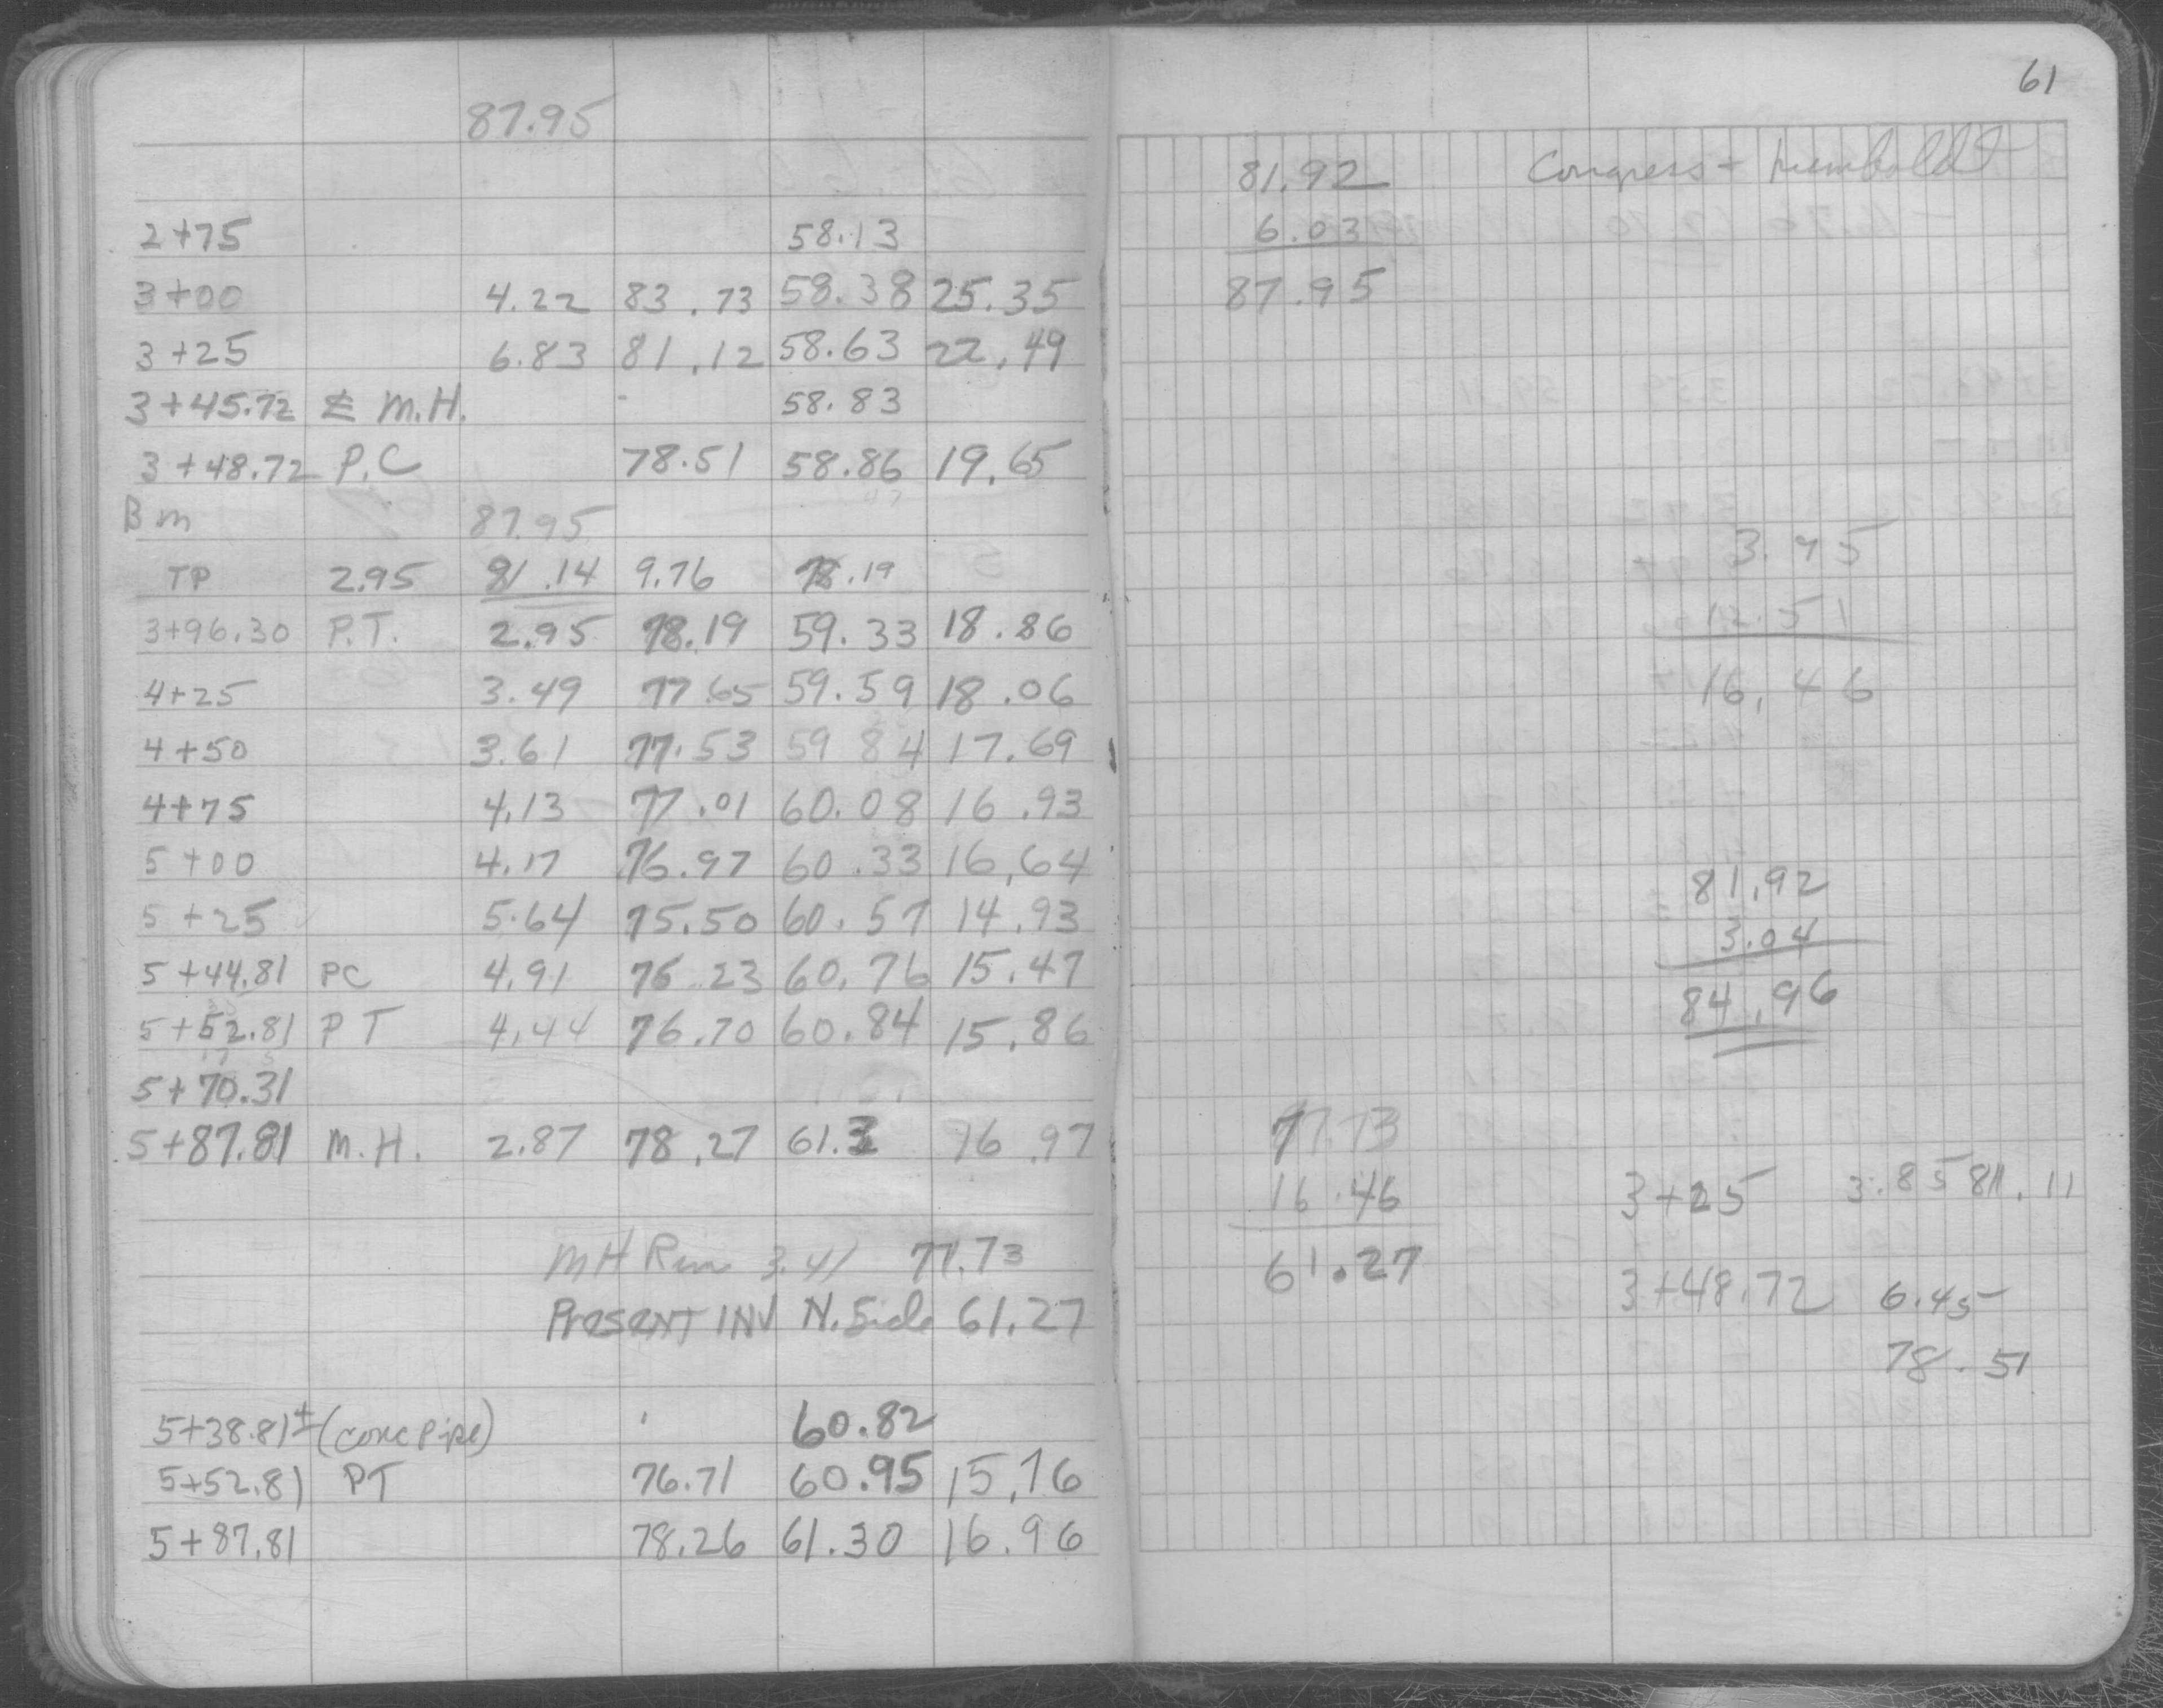 87.95
2+75 58.13
3+00 4.22 83.73 58.38 25.35
3+25 6.83 81.12 58.63 22.49
3+45.72 M.H. 58.83
3+48.72 P.C 78.51 58.86 19.65
Bm 87.95
TP 2.95 81.14 9.76 78.19
3+96.30 P.T. 2.95 78.19 59.33 18.86
4+25 3.49 77.65 59.59 18.06
4+50 3.61 77.53 59 84 17.69
4+75 4.13 77.01 60.08 16.93
5+00 4.17 76.97 60.33 16,64
5+25 5.64 75.50 60.57 14.93
5+44.81 PC 4.91 76.23 60.76 15.47
5+52.81 PT 4.44 76.70 60.84 15.86
5+70.31
5+87.81 M.H. 2.87 78.27 61.3 16.97
MH Rim 3.41 77.73
Present INV N. Side 61.27
5+38.81± (conc pipe) 60.82
5+52.81 PT 76.71 60.95 15.76
5+87.81 78.26 61.30 16.96
61
Congress + Humboldt
81.92
6.03
87.95
3.95
12.51
16.46
81.92
3.04
84.96
77.73
16.46
61.27
3+25 3.85 81.11
3+48.72 6.45
78.51